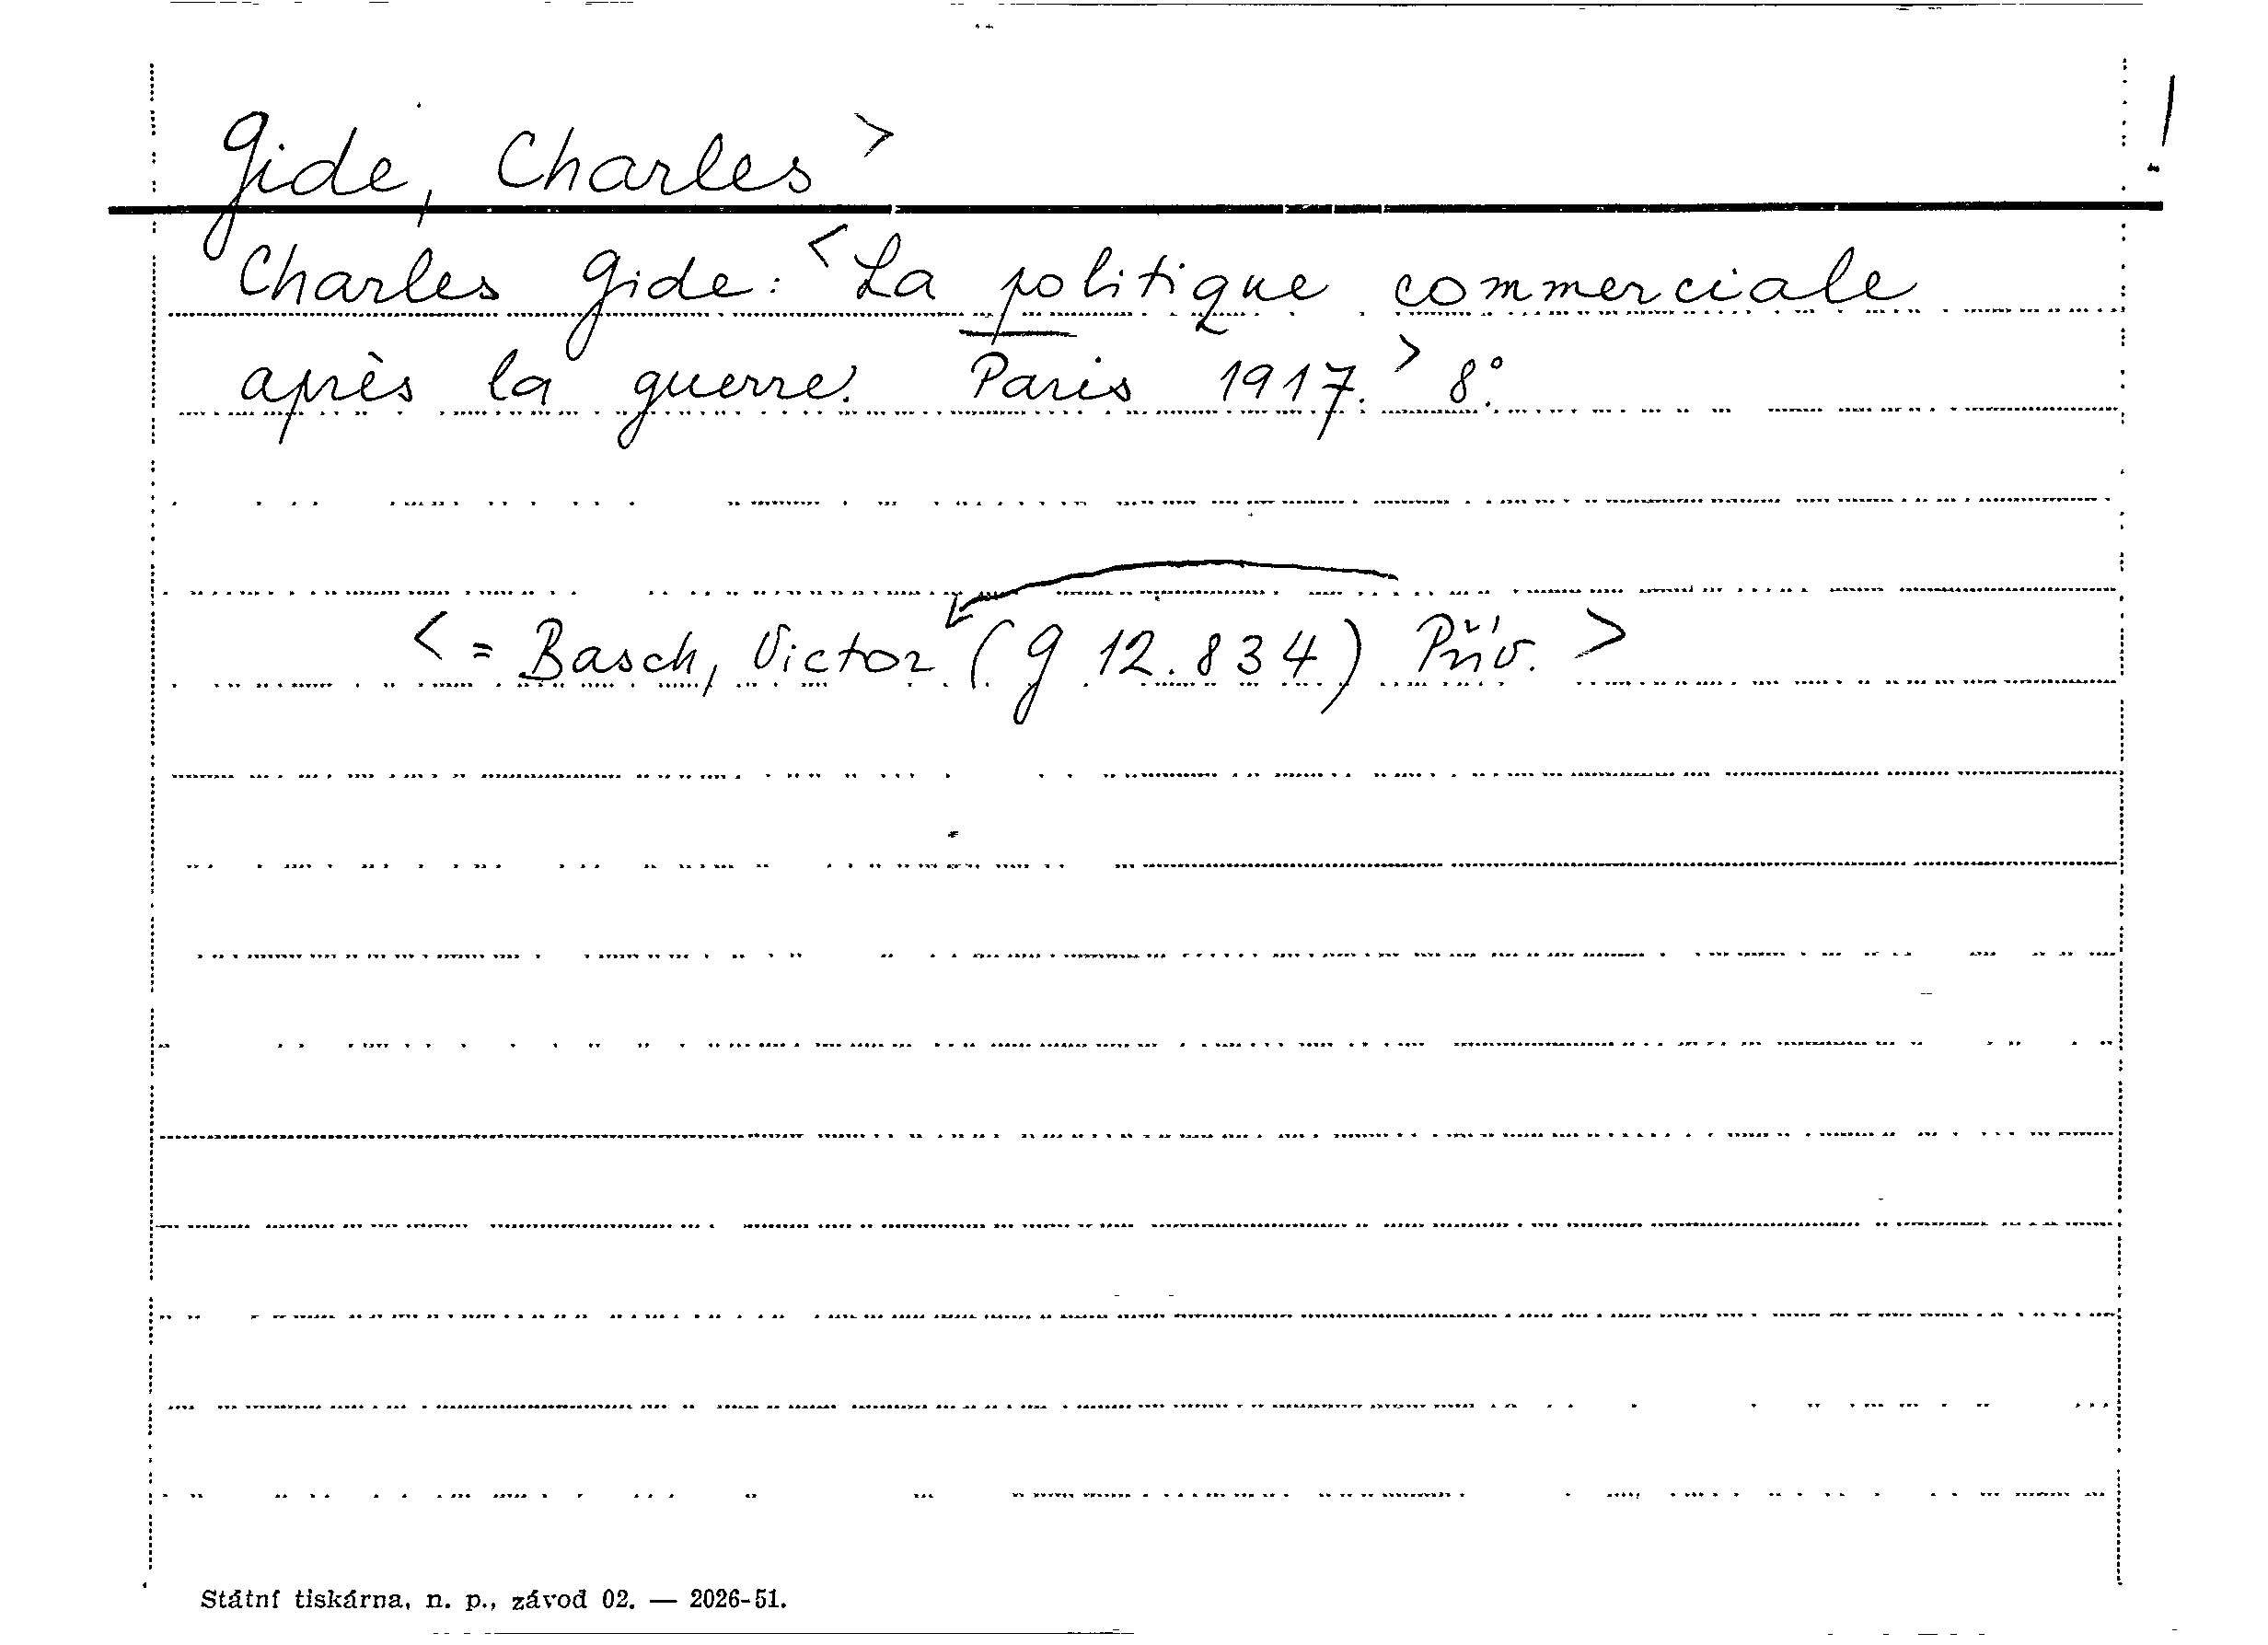 Gide, Charles >
!
Charles Gide: <La politique commerciale
après la guerre. Paris 1917.> 8°.
< = Basch, Victor (G 12.834) Přív. >
Státní tiskárna, n. p., závod 02. — 2026-51.